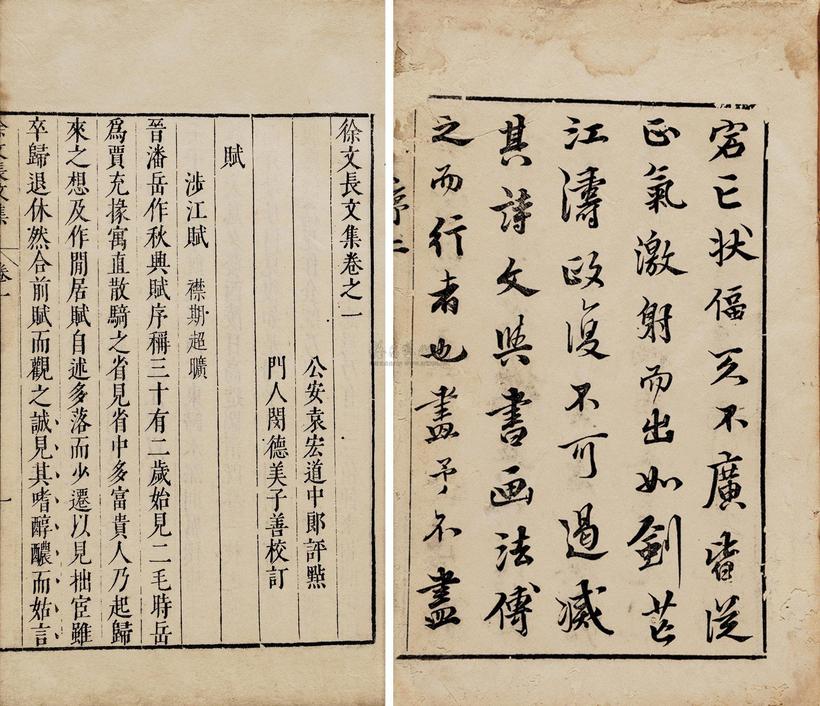 宕亡狀偪仄不廣皆從
正氣激射而出如劍芒
江濤政復不可遏滅
其詩文與書画法傳
之而行者也畫予不盡
序二
徐文長文集卷之一
公安袁宏道中郎評點
門人閔德美子善校訂
賦
涉江賦 襟期超曠
晉潘岳作秋興賦序稱三十有二歲始見二毛時岳
爲賈充掾寓直散騎之省見省中多富貴人乃起歸
來之想及作閒居賦自述多落而少遷以見拙宦雖
卒歸退休然合前賦而觀之誠見其嗜醇醲而姑言
徐文長文集 卷一 一